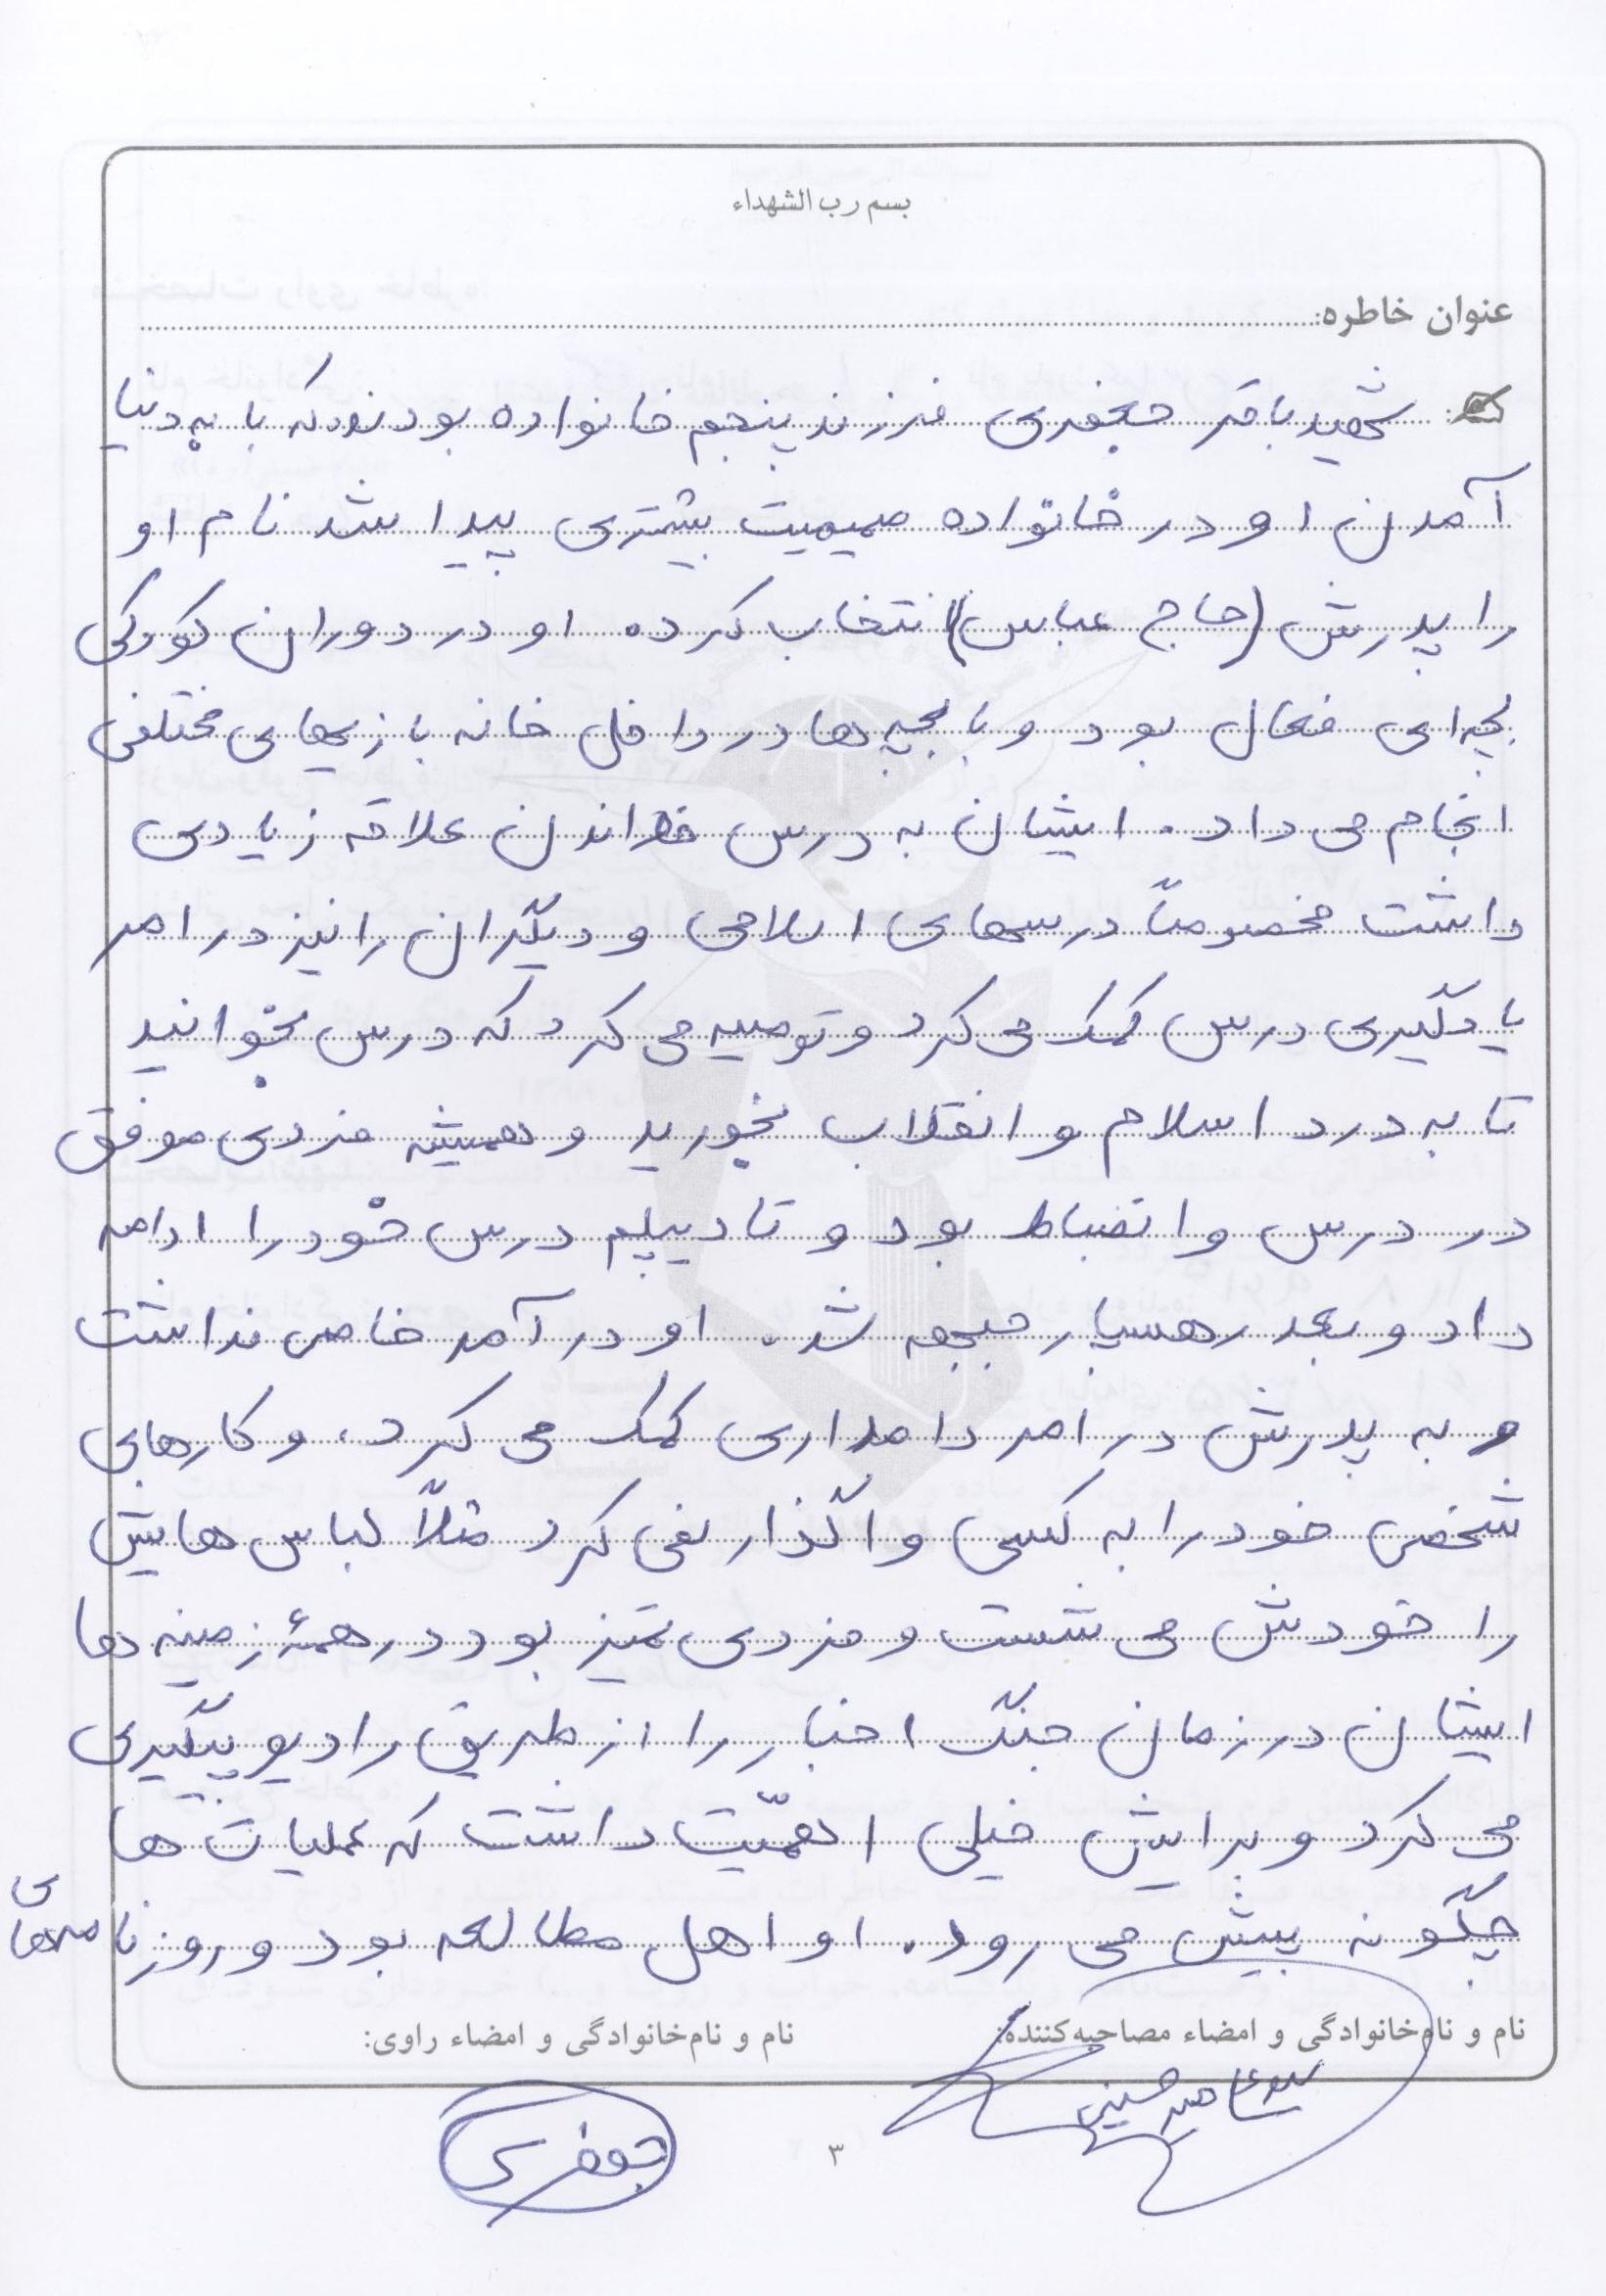 بسم رب الشهداء
عنوان خاطره:
شهید باقر جعفری فرزند پنجم خانواده بودند که با به دنیا
آمدن او در خانواده صمیمیت بیشتری پیدا شد نام او
را پدرش (حاج عباس) انتخاب کرده. او در دوران کودکی
بچه ای فعال بود و با بچه ها در داخل خانه بازیهای مختلفی
انجام می داد. ایشان به درس خواندن علاقه زیادی
داشت مخصوصاً درسهای اسلامی و دیگران را نیز در امر
یادگیری درس کمک می کرد و توصیه می کرد که درس بخوانید
تا به درد اسلام و انقلاب بخورید و همیشه مردی موفق
در درس و انضباط بود و تا دیپلم درس خود را ادامه
داد و بعد رهسپار جبهه شد. او درآمد خاص نداشت
و به پدرش در امر دامداری کمک می کرد، و کارهای
شخصی خود را به کسی واگذار نمی کرد مثلاً لباس هایش
را خودش می شست و مردی تمیز بود در همهٔ زمینه ها
ایشان در زمان جنگ اخبار را از طریق رادیو پیگیری
می کرد و برایش خیلی اهمیّت داشت که عملیات ها
چگونه پیش می رود. او اهل مطالعه بود و روزنامه های
نام و نام‌خانوادگی و امضاء مصاحبه‌کننده: نام و نام‌خانوادگی و امضاء راوی:
میرحسینی
جعفری
۳